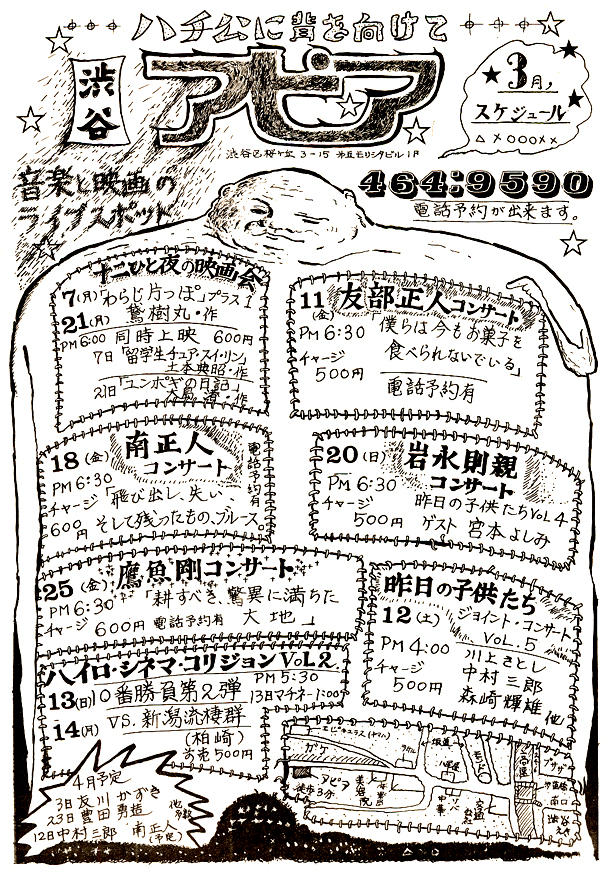 ハチ公に背を向けて
渋谷
アピア
3月,
スケジュール
△×○○○××
渋谷区桜ヶ丘3-15 第五モリシタビル1F
音楽と映画の
ライブスポット
464:9590
電話予約が出来ます。
十二ひと夜の映画会
7(月)「わらじ片っぽ」プラス1
21(月) 鴦樹丸・作
PM6:00 同時上映 600円
7日「留学生チュア・スイ・リン」
土本典昭・作
21日「ユンボギの日記」
大島渚・作
11(金) 友部正人コンサート
PM6:30 「僕らは今もお菓子を
チャージ 食べられないでいる」
500円 電話予約有
18(金) 南正人
コンサート
電話予約有
PM6:30
チャージ 「飛び出し、失い、
600円 そして残ったもの、ブルース。」
20(日) 岩永則親
コンサート
PM6:30
チャージ 昨日の子供たちVol.4
500円 ゲスト 宮本よしみ
25(金) 鷹魚剛コンサート
PM6:30 「耕すべき、驚異に満ちた
チャージ 600円 電話予約有 大地」
昨日の子供たち
12(土) ジョイント・コンサート
VOL.5
PM4:00 川上さとし
チャージ 中村三郎
500円 森崎輝雄 他
ハイロ・シネマ・コリジョンVol.2
13(日) 0番勝負第2弾 PM5:30
13日マチネー1:00
14(月) VS.新潟流棲群
(柏崎)
前売500円
4月予定
3日友川かずき
23日豊田勇造
12日中村三郎 南正人
(予定)
他多数
ガケ
アピア
徒歩3分
美容院
中華
南口
渋谷えき